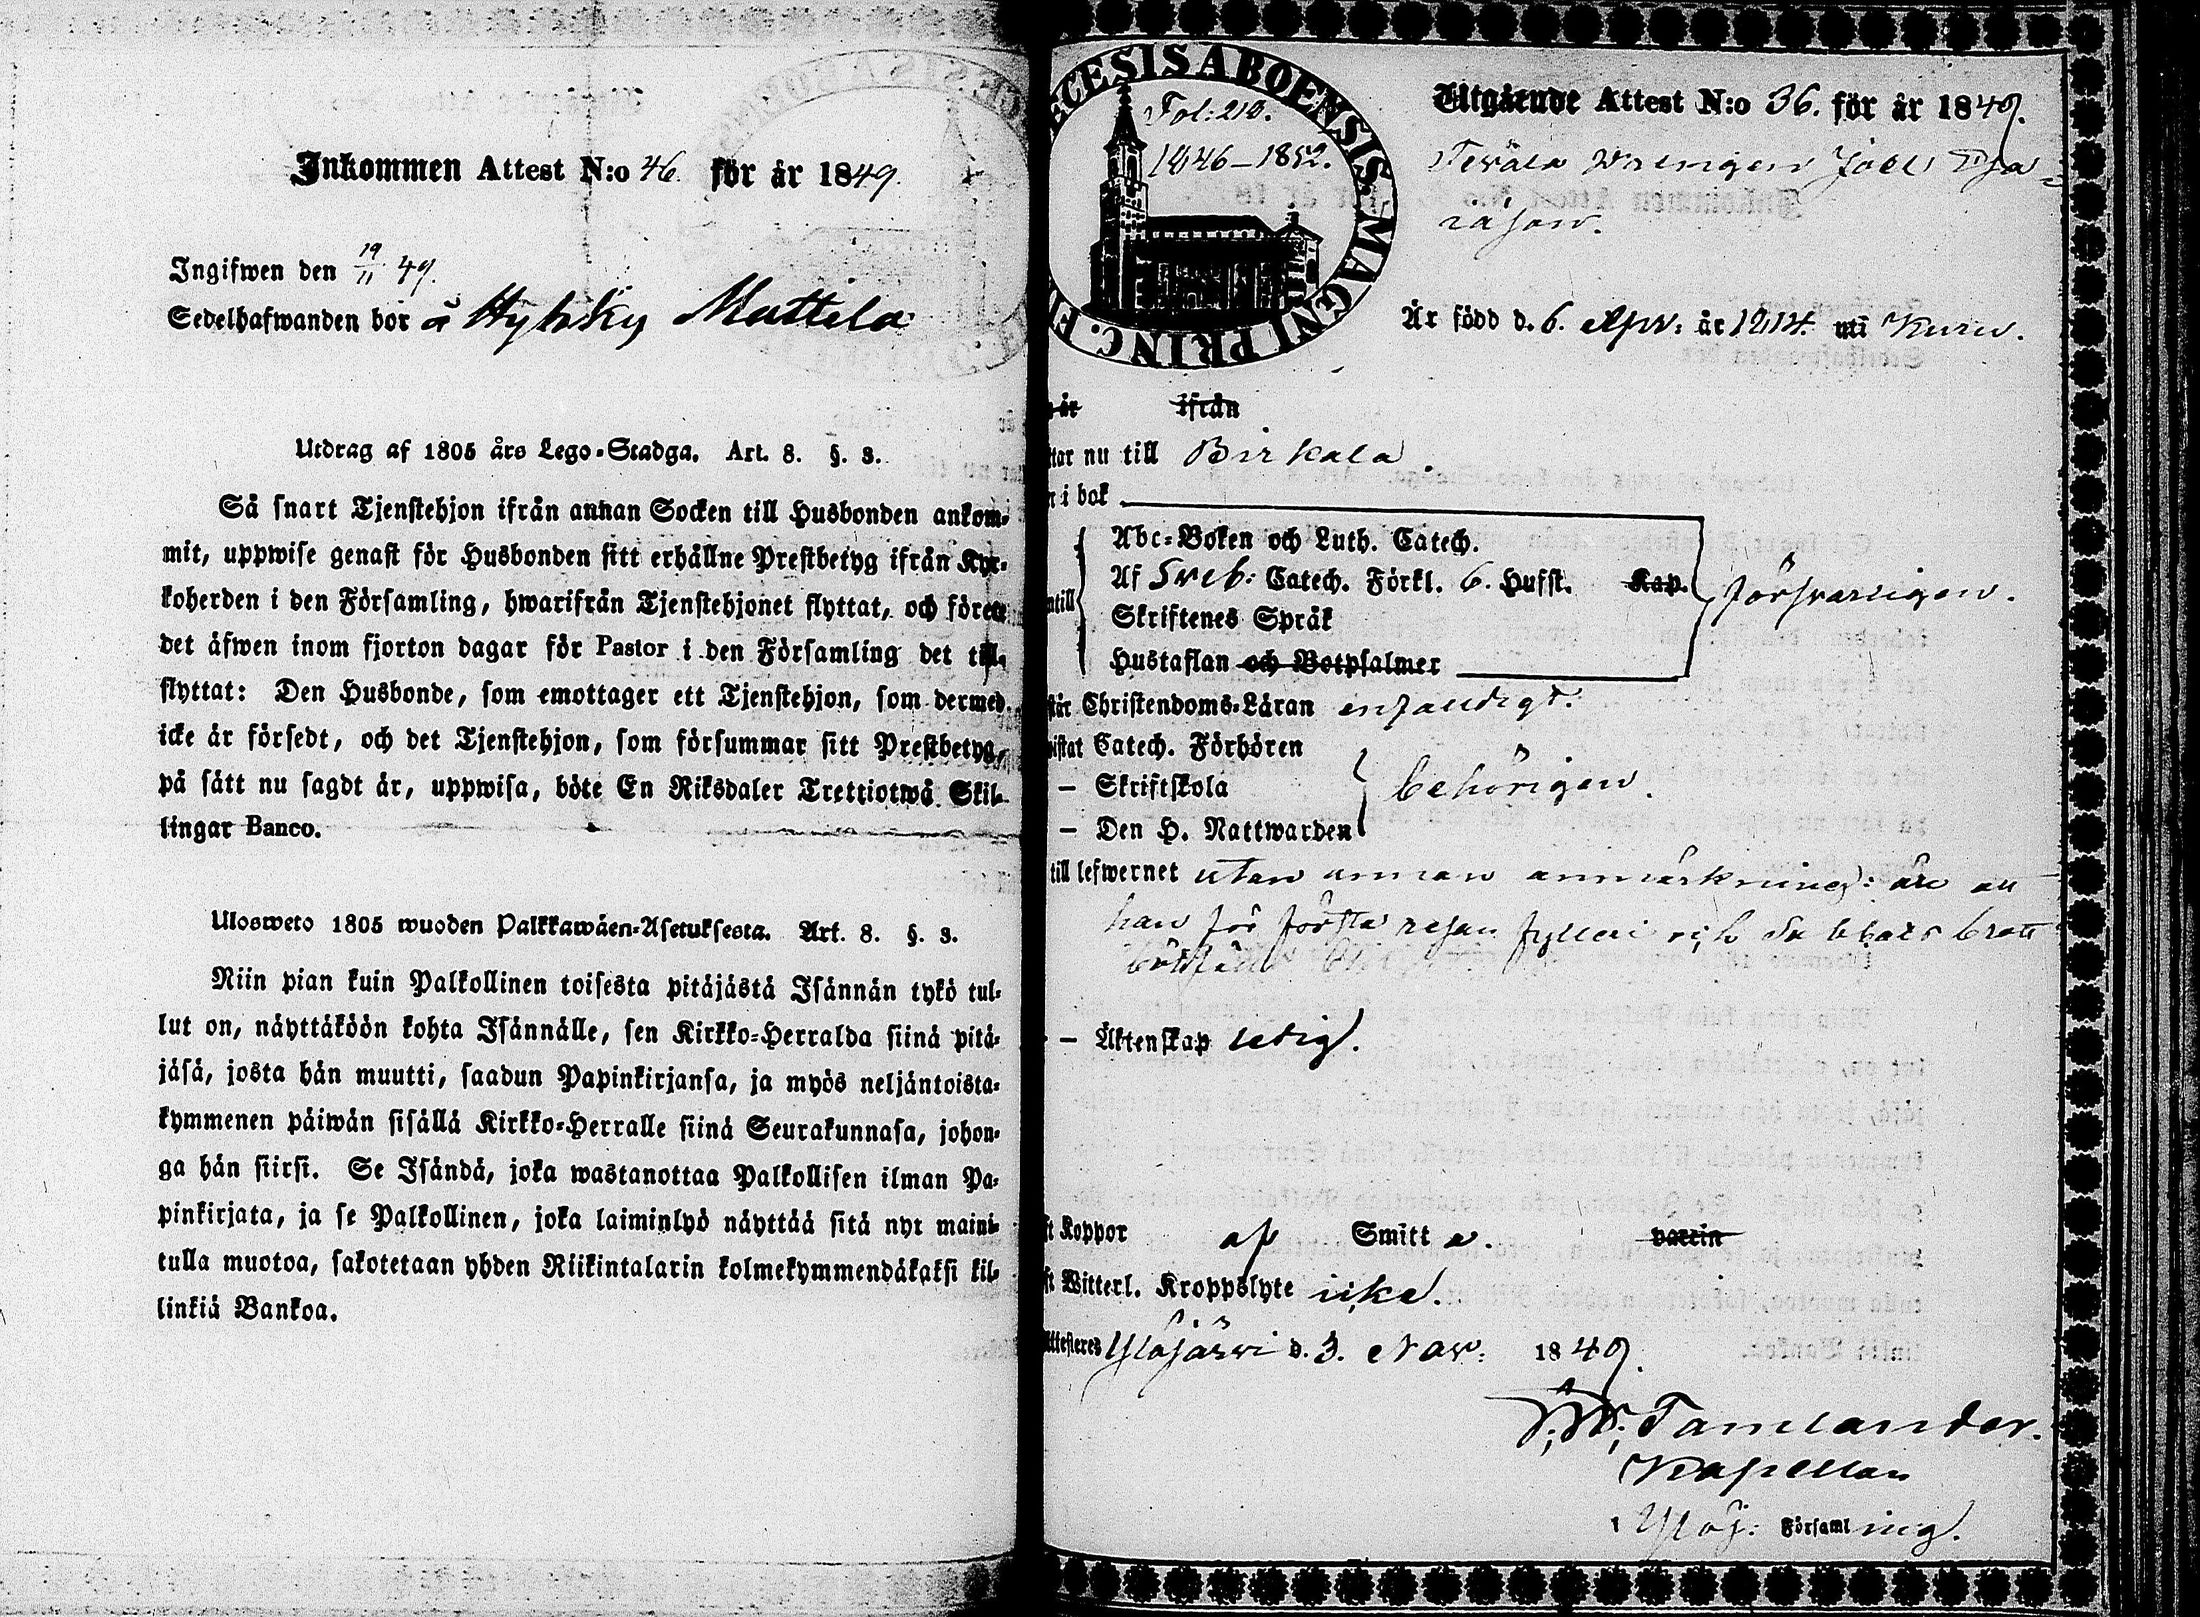 Inkommen Attest N:o 46. för år 1849.
Ingifwen den 19/11 49.
Sedelhafwanden bor å Hyhky Mattila
Utdrag af 1805 års Lego-Stadga. Art. 8. §. 3.
Så snart Tjenstehjon ifrån annan Socken till Husbonden ankom-
mit, uppwise genast för Husbonden sitt erhållne Prestbetyg ifrån Kyr-
koherden i den Församling, hwarifrån Tjenstehjonet flyttat, och förete
det äfwen inom fjorton dagar för Pastor i den Församling det till-
flyttat: Den Husbonde, som emottager ett Tjenstehjon, som dermed
icke är försedt, och det Tjenstehjon, som försummar sitt Prestbetyg,
på sätt nu sagdt är, uppwisa, böte En Riksdaler Trettiotwå Skil-
lingar Banco.
Ulosweto 1805 wuoden Palkkawäen-Asetuksesta. Art. 8. §. 3.
Niin pian kuin Palkollinen toisesta pitäjästä Isännän tykö tul-
lut on, näyttäköön kohta Isännälle, sen Kirkko-Herralda siinä pitä-
jäsä, josta hän muutti, saadun Papinkirjansa, ja myös neljäntoista-
kymmenen päiwän sisällä Kirkko-Herralle siinä Seurakunnasa, johon-
ga hän siirsi. Se Isändä, joka wastanottaa Palkollisen ilman Pa-
pinkirjata, ja se Palkollinen, joka laiminlyö näyttää sitä nyt maini-
tulla muotoa, sakotetaan yhden Riikintalarin kolmekymmendäkaksi kil-
linkiä Bankoa.
ECESIS ABOENSIS. MAGNI PRINC. F
Fol: 210.
1846–1852.
Utgående Attest N:o 36. för år 1849.
Drengen Joel
Är född d. 6. Apr: år 1814. uti Kuru.
år ifrån
tar nu till Birkala.
n i bok
Abc-Boken och Luth. Catech.
Af Sveb: Catech. Förkl. 6. Hufst. Kap. försvarligen.
ntill Skriftenes Språk
Hustaflan och Botpsalmer
står Christendoms-Läran enfaldigt.
istat Catech. Förhören
– Skriftskola behörigen.
– Den H. Nattwarden
till lefwernet utan annan anmärkning: än att
han för första resan fylleri och Sabbats brott
– Äktenskap ledig.
ft Koppor af Smitt a. vaccin
ft Witterl. Kroppslyte icke.
Attesteres Ylöjärvi d. 3. Nov: 1849.
Tamlander.
Kapellan
i Ylöj: Församling.